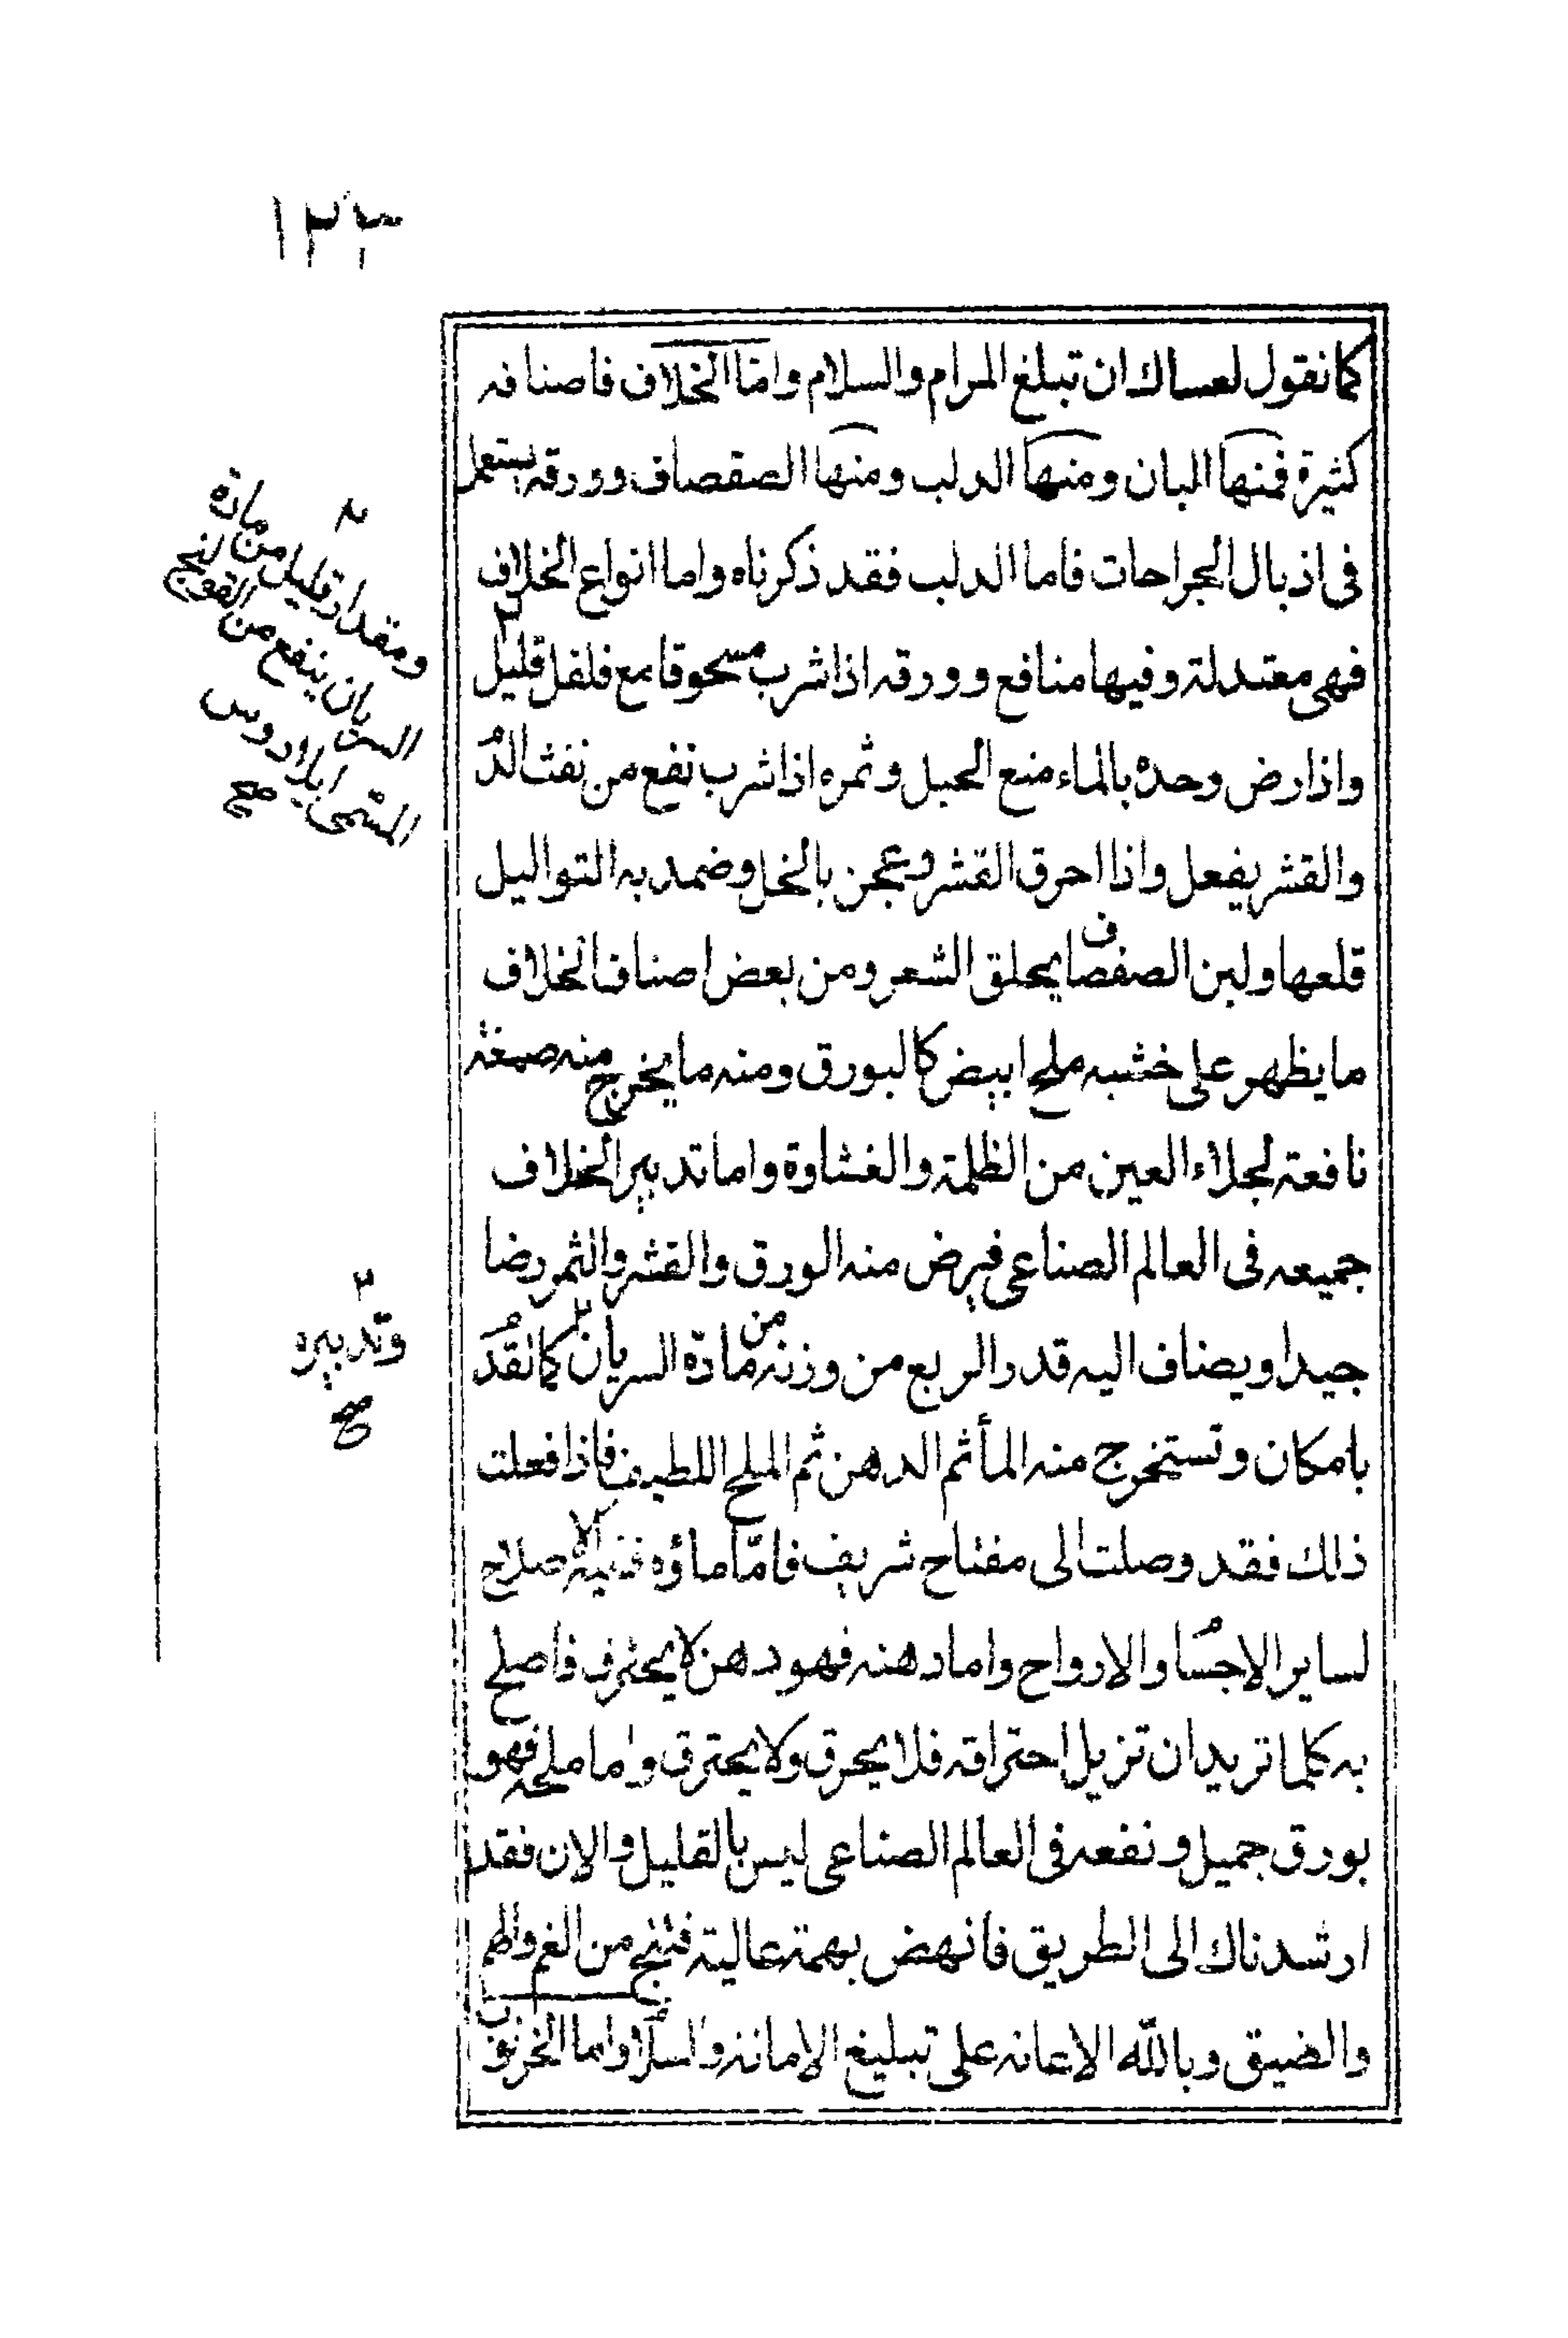 ١٢٣
كما نقول لعساك ان تبلغ المرام والسلام وامّا الخلاف فاصنافه
كثيرة فمنها البان ومنها الدلب ومنها الصفصاف وورقه يستعمل
فى اذبال الجراحات فاما الدلب فقد ذكرناه واما انواع الخلاف
فهى معتدلة وفيها منافع وورقه اذا شرب مسحوقا مع فلفل قليل
واذا رض وحده بالماء منع الحبل وثمره اذا شرب نفع من نفث الدم
والقشر يفعل واذا احرق القشر وعجن بالخل وضمد به التواليل
قلعها ولبن الصفصاف يحلق الشعر ومن بعض اصناف الخلاف
ما يظهر على خشبه ملح ابيض كالبورق ومنه ما يخرج منه صمغة
نافعة لجلاء العين من الظلمة والغشاوة واما تدبير الخلاف
جميعه فى العالم الصناعى فيرض منه الورق والقشر والثمر رضا
جيدا ويضاف اليه قدر الربع من وزنه من مادّة السريان كما تقدم
بامكان وتستخرج منه المأ ثم الدهن ثم الملح اللطيف فاذا فعلت
ذلك فقد وصلت الى مفتاح شريف فامّا ماؤه ففيه الاصلاح
لساير الاجسام والارواح واما دهنه فهو دهن لا يحترف فاصلح
به كلما تريد ان تزيل احتراقه فلا يحرق ولا يحترق واما ملحه فهو
بورق جميل ونفعه فى العالم الصناعى ليس بالقليل والان فقد
ارشدناك الى الطريق فانهض بهمة عالية فتنج من الغم والهم
والضيق وبالله الاعانه على تبليغ الامانة والسلام واما الخرنوب
ومقدار قليل من مادة
السريان ينفع من القولنج
المسمى ايلاوس
صح
وتدبيره
صح